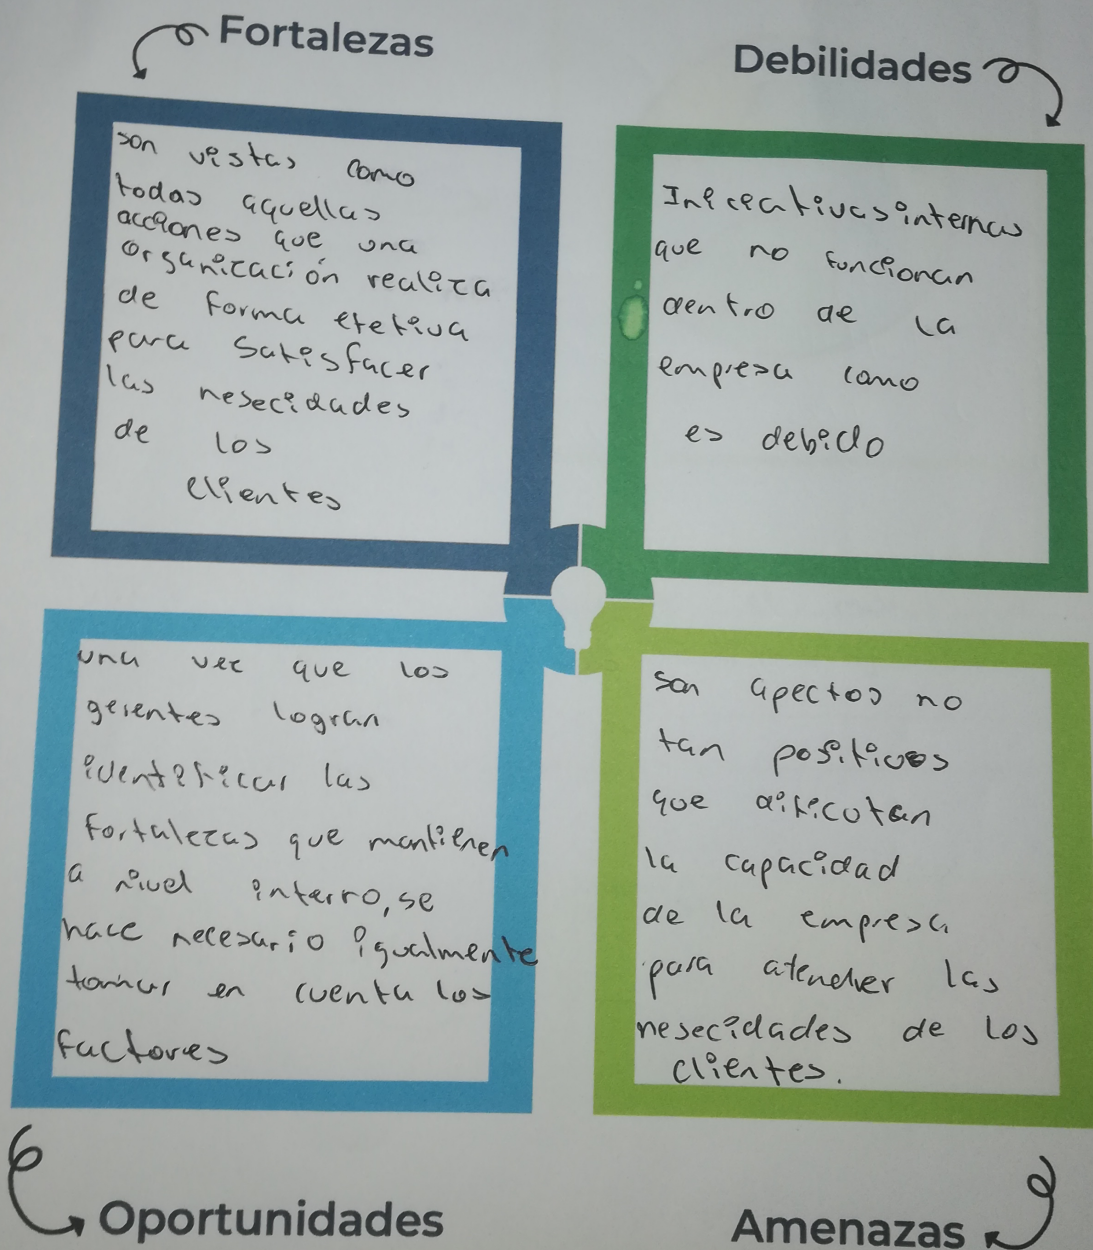 Fortalezas
son vistas como
todas aquellas
acciones que una
organización realiza
de forma efetiva
para satisfacer
las nesecidades
de los
clientes
Debilidades
Iniciativas internas
que no funcionan
dentro de la
empresa como
es debido
una vez que los
gerentes logran
identificar las
fortalezas que mantienen
a nivel interno, se
hace necesario igualmente
tomar en cuenta los
factores
Oportunidades
son apectos no
tan positivos
que dificultan
la capacidad
de la empresa
para atender las
nesecidades de los
clientes.
Amenazas